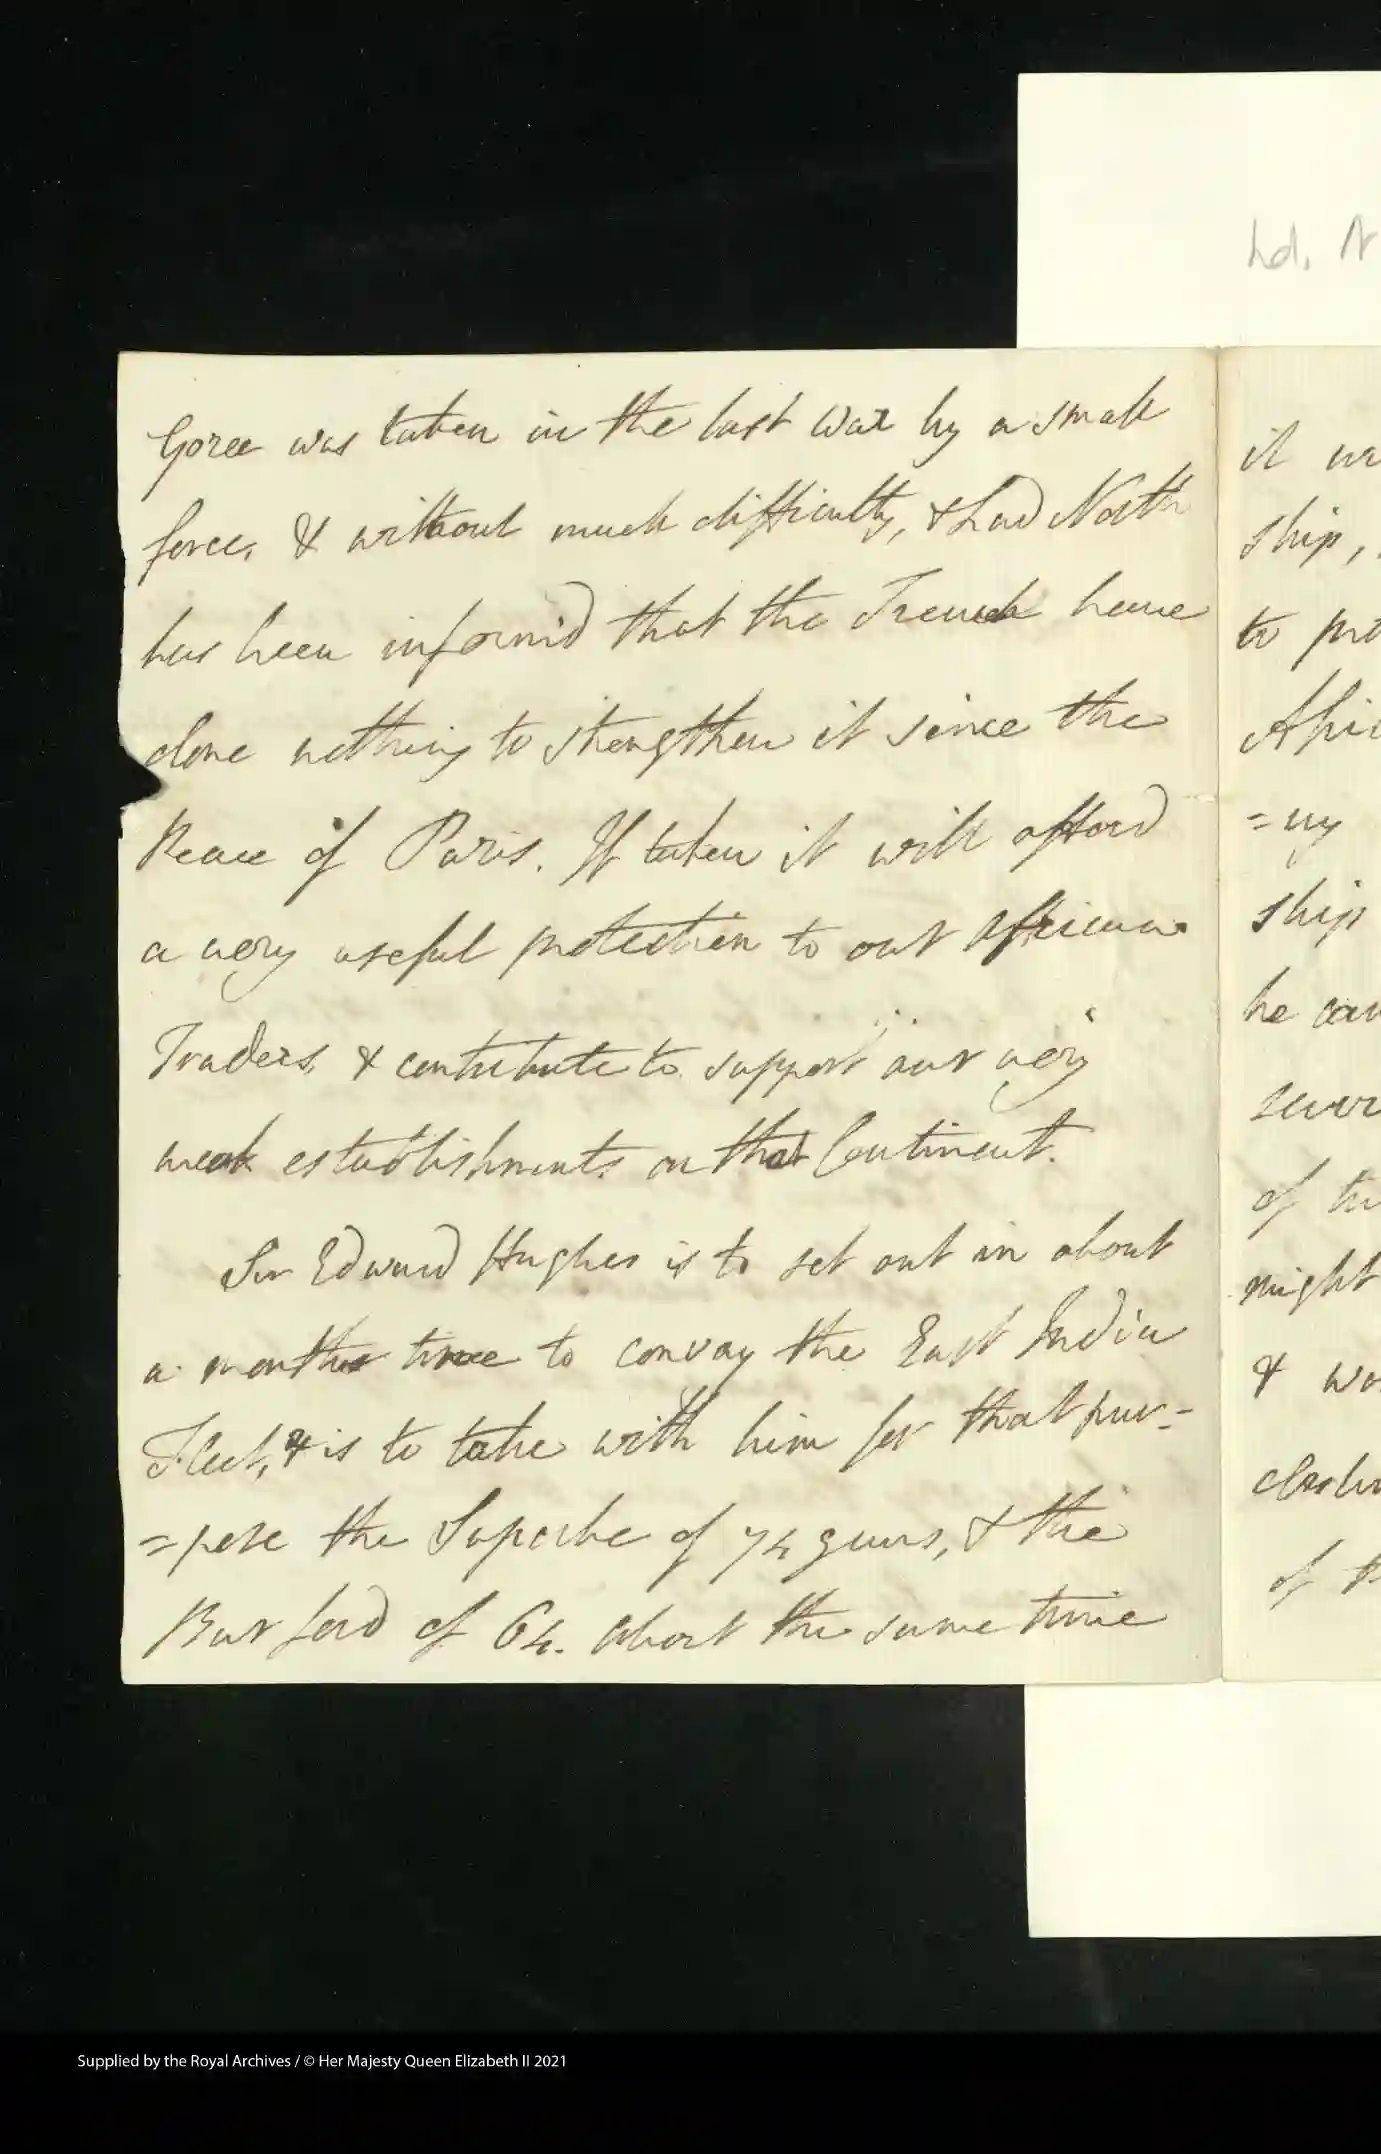 Ld. N
Goree was taken in the last War by a small
force, & without much difficulty, & Lord North
has been inform'd that the French have
done nothing to strengthen it since the
Peace of Paris. If taken it will afford
a very useful protection to our African
Traders, & contribute to support our very
weak establishments on that Continent.
Sir Edward Hughes is to set out in about
a months time to convoy the East India
Fleet, & is to take with him for that pur-
=pose the Superbe of 74 guns, & the
Burford of 64. About the same time
it
ship,
to
=ny
ship
he
of
might
&
of
Supplied by the Royal Archives / © Her Majesty Queen Elizabeth II 2021